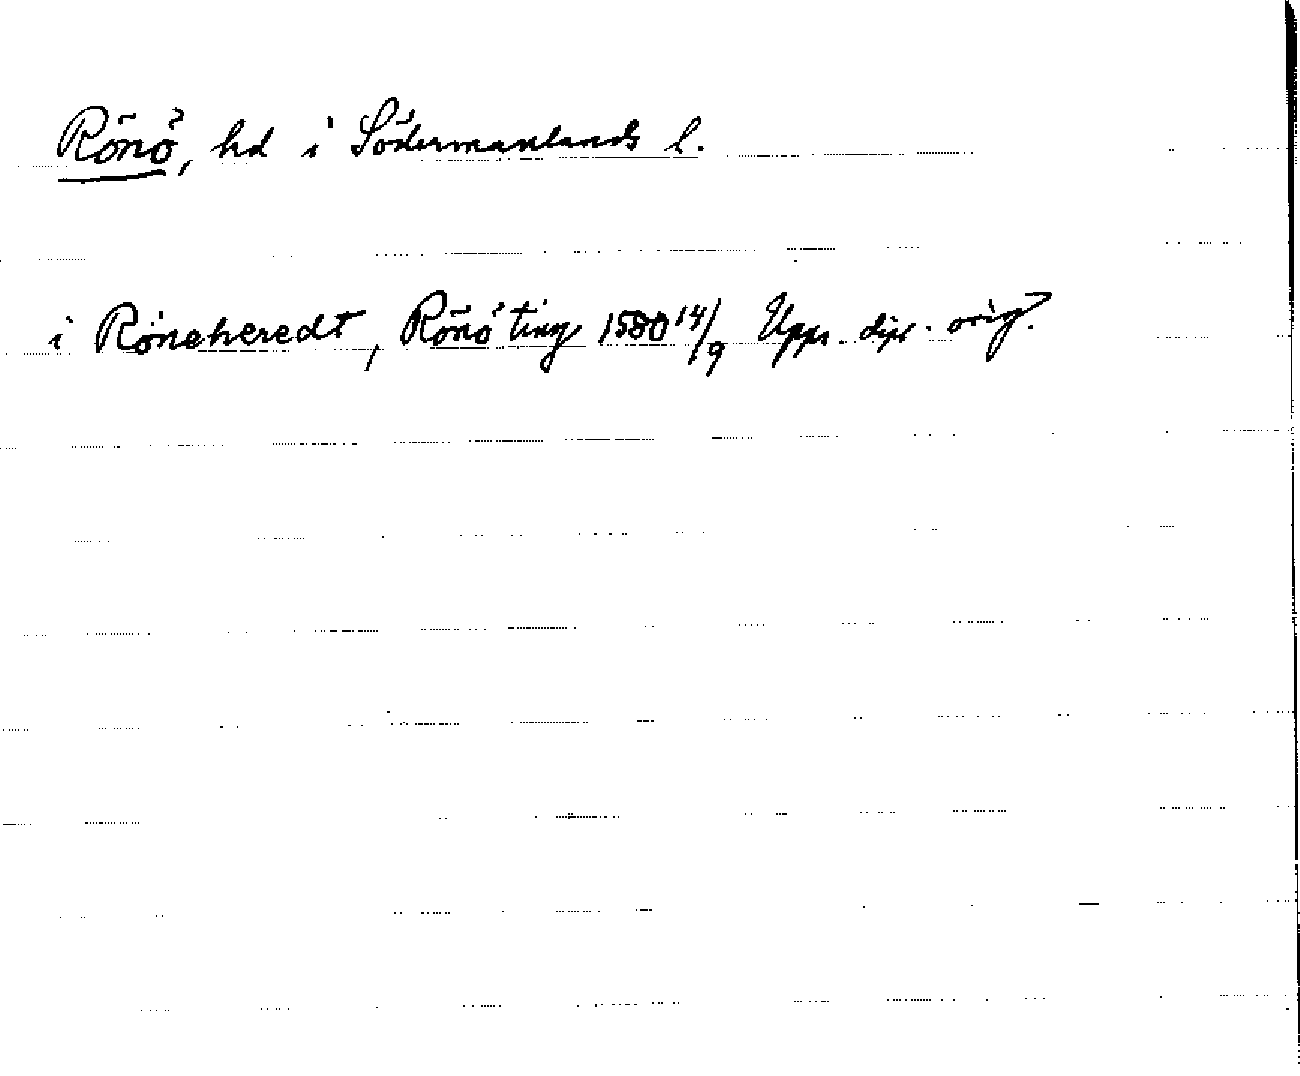 Rönö, hd i Södermanlands l.
i Röneheredt, Rönö ting 1580 14/9 Upps. dipl. orig.